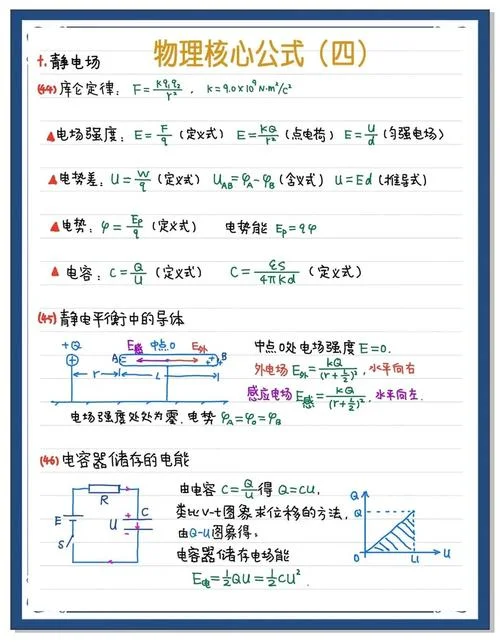 物理核心公式（四）
十.静电场
(44)库仑定律：F=kq₁q₂/r²， k=9.0×10⁹N·m²/C²
▲电场强度：E=F/q（定义式） E=kQ/r²（点电荷） E=U/d（匀强电场）
▲电势差：U=W/q（定义式） U_AB=φ_A-φ_B（含义式） U=Ed（推导式）
▲电势：φ=Ep/q（定义式） 电势能 Ep=qφ
▲电容：C=Q/U（定义式） C=εS/4πkd（定义式）
(45)静电平衡中的导体
+Q E感 中点O E外
A B
r L
中点O处电场强度E=0.
外电场E外=kQ/(r+L/2)², 水平向右
感应电场E感=kQ/(r+L/2)², 水平向左.
电场强度处处为零.电势φ_A=φ_O=φ_B
(46)电容器储存的电能
R
E U C
S
由电容C=Q/U得Q=CU,
类比v-t图象求位移的方法,
由Q-U图象得,
电容器储存电场能
E电=½QU=½CU².
Q
Q
O U U